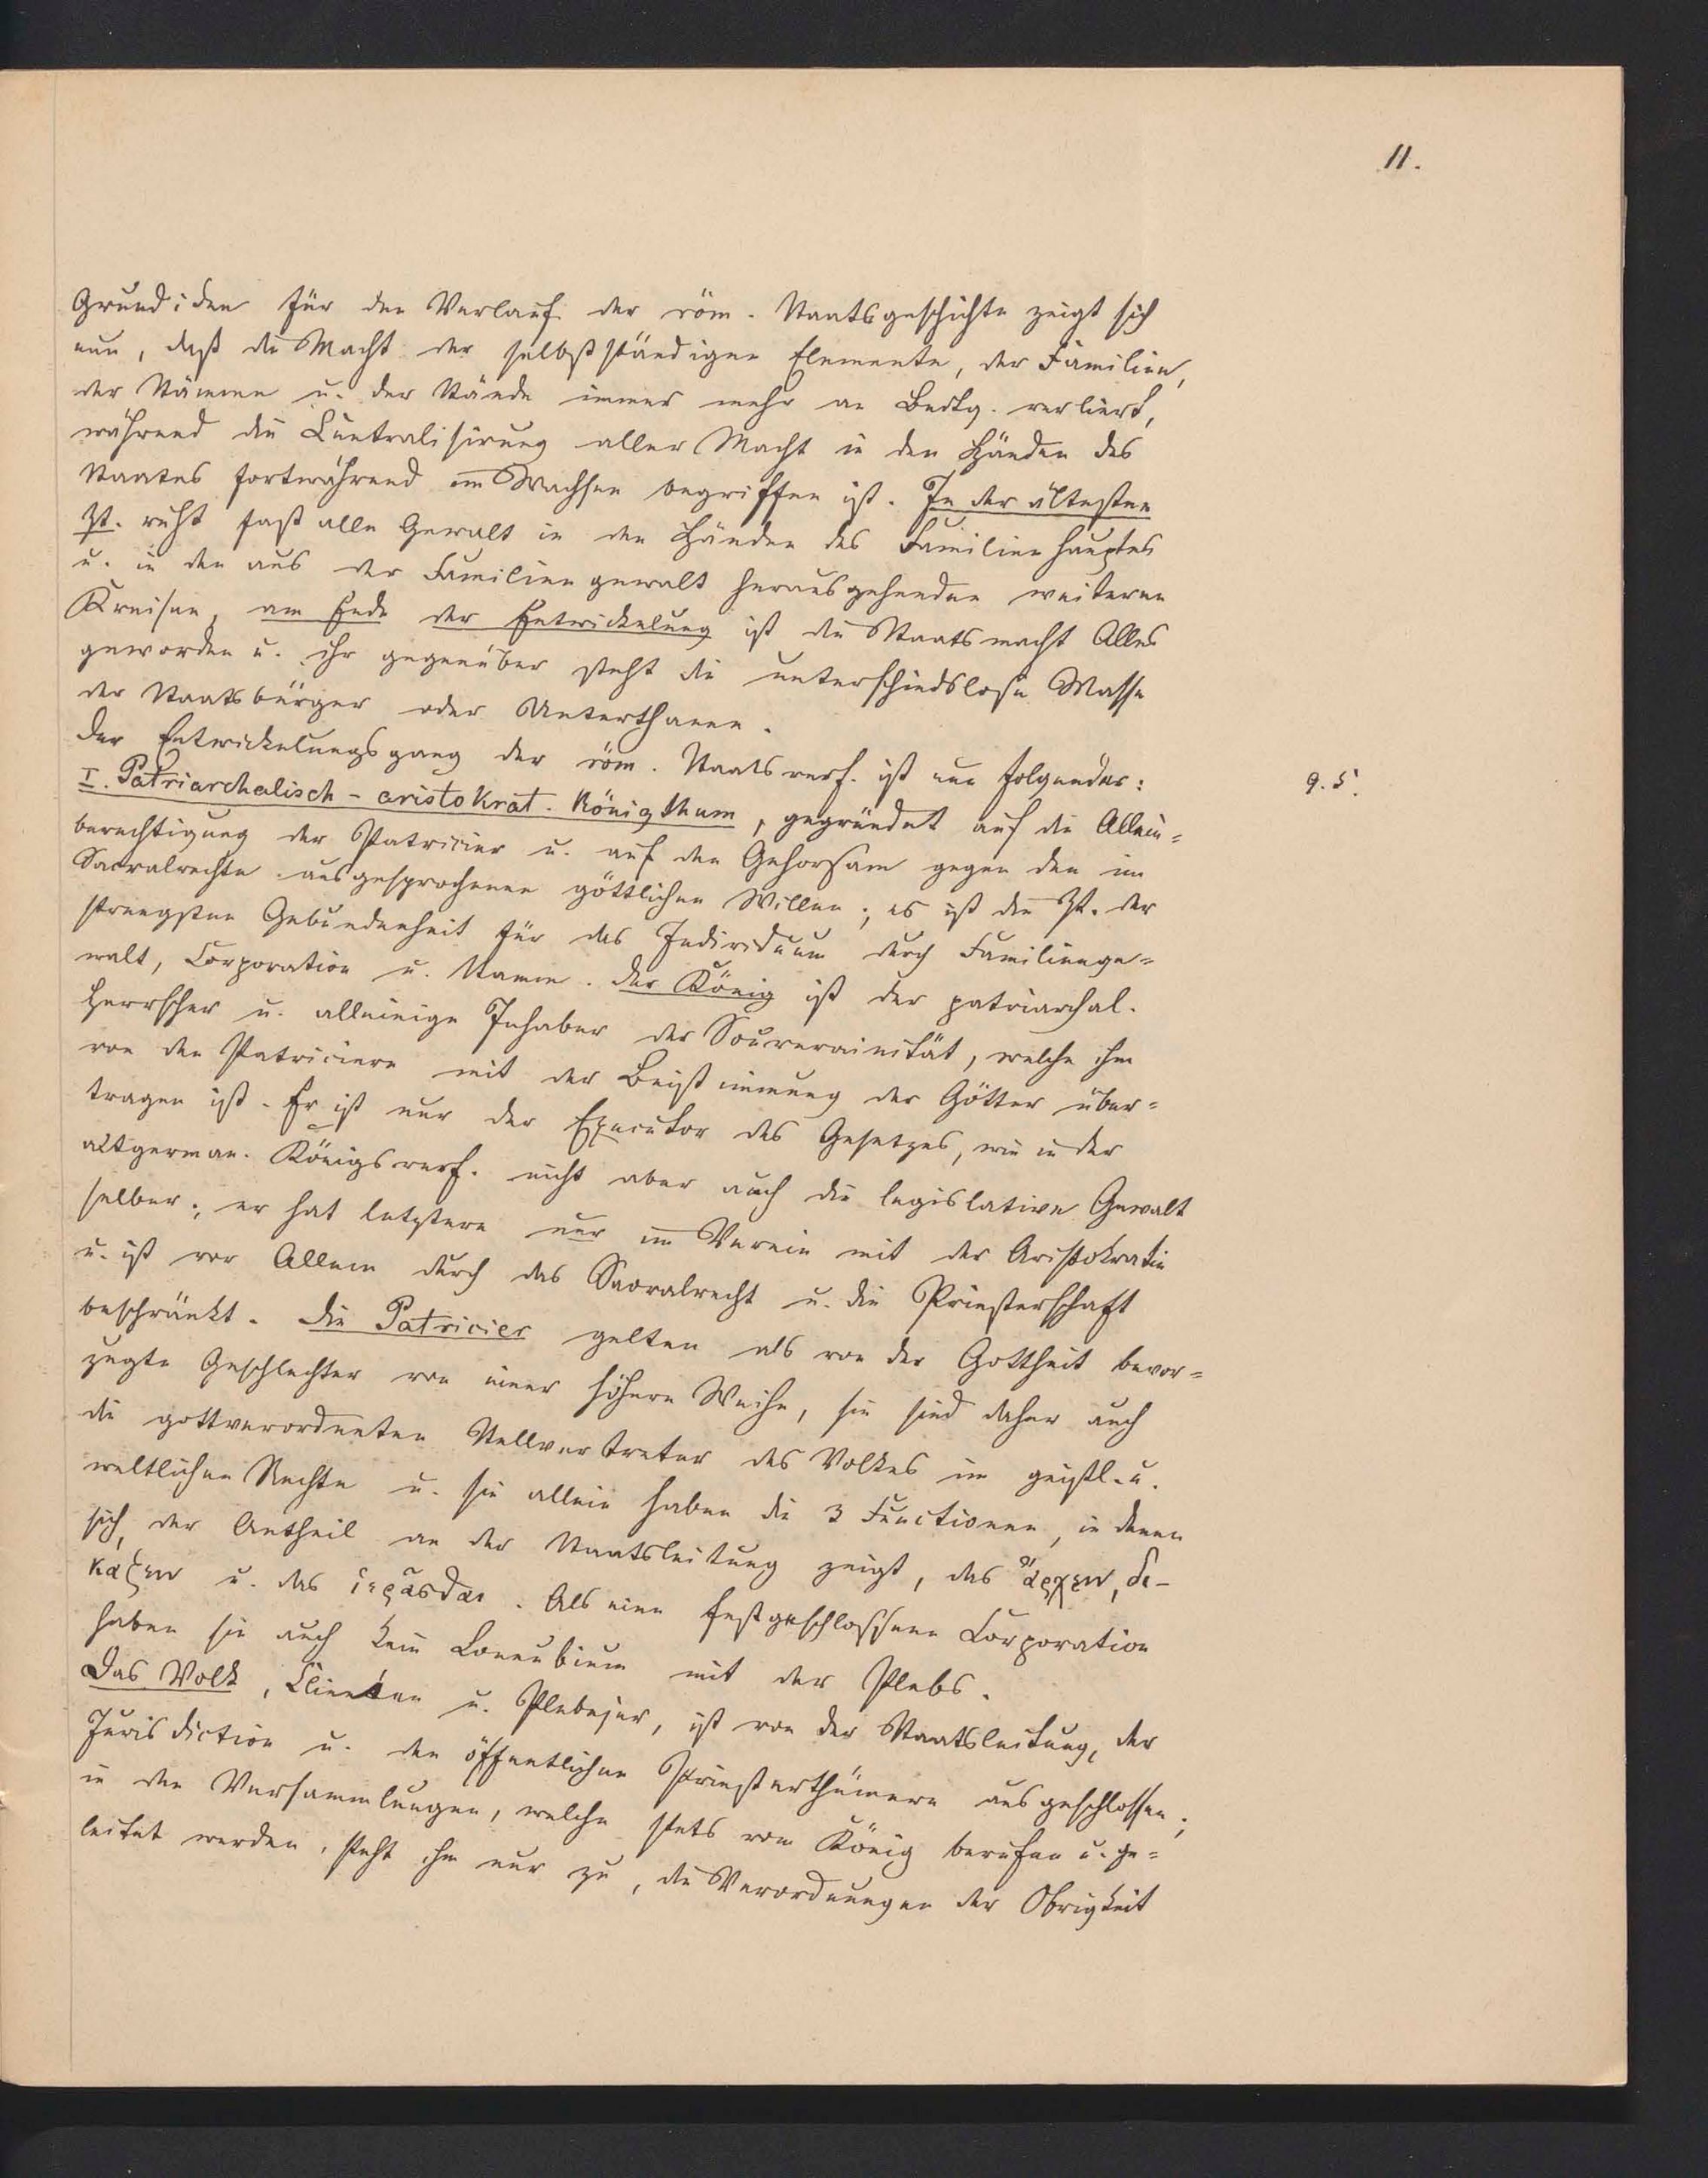 11.
Grundidee für den Verlauf der röm. Staatsgeschichte zeigt sich
nun, daß die Macht der selbstständigen Elemente, der Familien,
der Stämme u. der Stände immer mehr an Bedtg. verliert,
während die Centralisirung aller Macht in den Händen des
Staates fortwährend im Wachsen begriffen ist. In der ältesten
Zt. ruht fast alle Gewalt in den Händen des Familienhauptes
u. in den aus der Familiengewalt herausgehenden weiteren
Kreisen, am Ende der Entwickelung ist die Staatsmacht Alles
geworden u. ihr gegenüber steht die unterschiedslose Masse
der Staatsbürger oder Unterthanen.
Der Entwickelungsgang der röm. Staatsverf. ist nun folgender:
9.5.
I. Patriarchalisch-aristokrat. Königthum, gegründet auf die Allein=
berechtigung der Patricier u. auf den Gehorsam gegen den im
Sacralrechte ausgesprochenen göttlichen Willen; es ist die Zt. der
strengsten Gebundenheit für das Individuum durch Familienge=
walt, Corporation u. Stamm. Der König ist der patriarchal.
Herrscher u. alleinige Inhaber der Souverainität, welche ihm
von den Patriciern mit der Beistimmung der Götter über=
tragen ist. Er ist nur der Executor des Gesetzes, wie in der
altgerman. Königsverf. nicht aber auch die legislative Gewalt
selber; er hat letztere nur im Verein mit der Aristokratie
u. ist vor Allem durch das Sacralrecht u. die Priesterschaft
beschränkt. Die Patricier gelten als von der Gottheit bevor=
zugte Geschlechter von einer höhern Weihe, sie sind daher auch
die gottverordneten Stellvertreter des Volkes im geistl. u.
weltlichen Rechte u. sie allein haben die 3 Functionen, in denen
sich der Antheil an der Staatsleitung zeigt, das ἄρχειν, δι-
κάζειν u. das ἱερᾶσθαι. Als eine festgeschlossene Corporation
haben sie auch kein Connubium mit der Plebs.
Das Volk, Clienten u. Plebejer, ist von der Staatsleitung, der
Jurisdiction u. den öffentlichen Priesterthümern ausgeschlossen;
in den Versammlungen, welche stets vom König berufen u. ge=
leitet werden, steht ihm nur zu, die Verordnungen der Obrigkeit